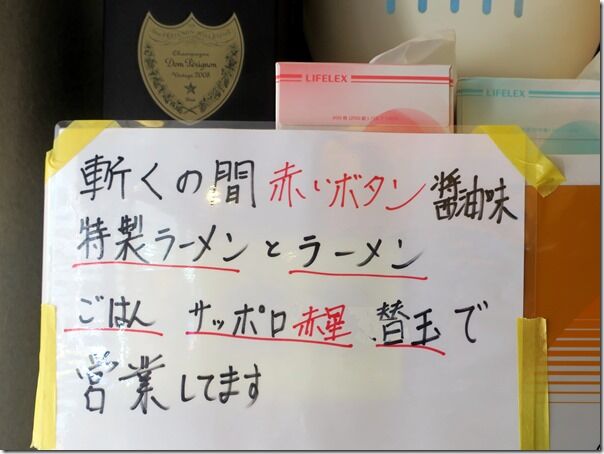 Champagne
Dom Pérignon
Vintage
LIFELEX
LIFELEX
斬くの間 赤いボタン 醤油味
特製ラーメンとラーメン
ごはん サッポロ赤星 替玉で
営業してます